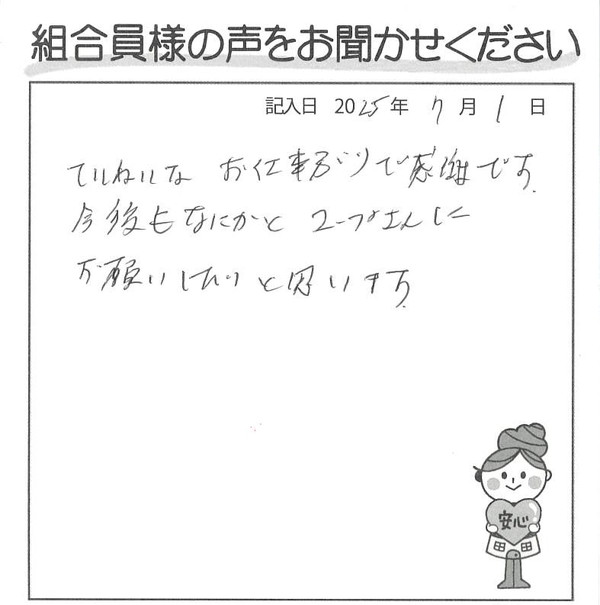 組合員様の声をお聞かせください
記入日 2025年 7月 1日
ていねいな お仕事ぶりで感謝です。
今後もなにかと コープさんに
お願いしたいと思います。
安心